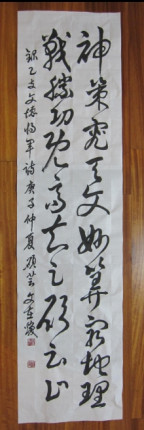 神策究天文妙算窮地理
戰勝功既高知足願云止
錄乙支文德將軍詩 庚子仲夏